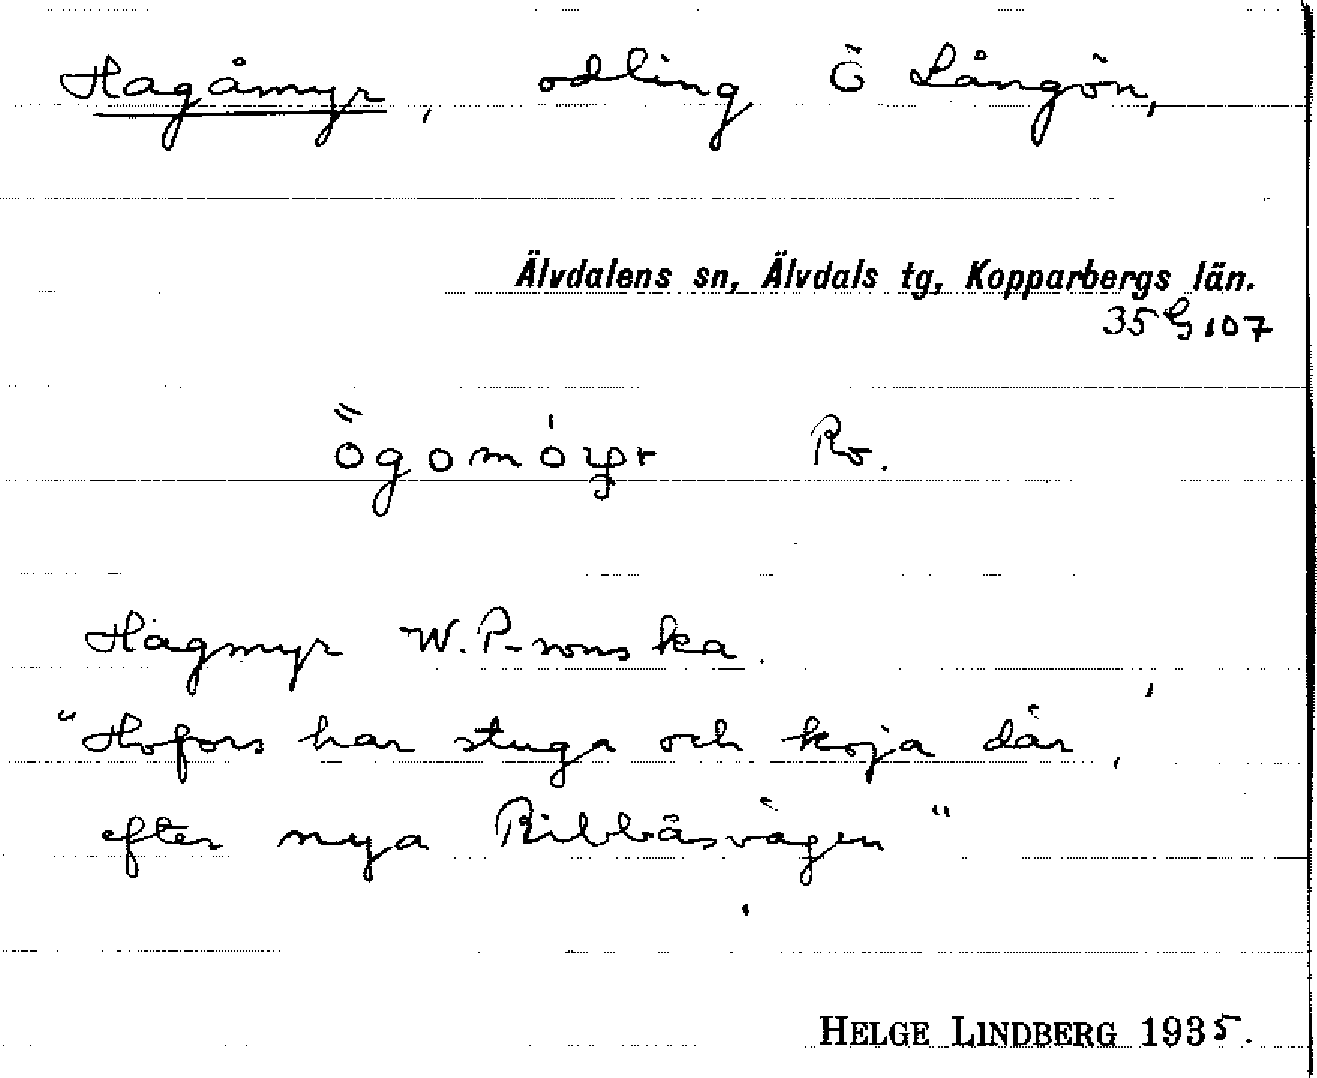 Hagåmyr, odling Ö Långön,
Älvdalens sn, Älvdals tg, Kopparbergs län.
35 G 107
Ro.
Hagmyr W. P-rons ka.
"Hofors har stuga och koja där,
efter nya Ribbåsvägen"
HELGE LINDBERG 1935.